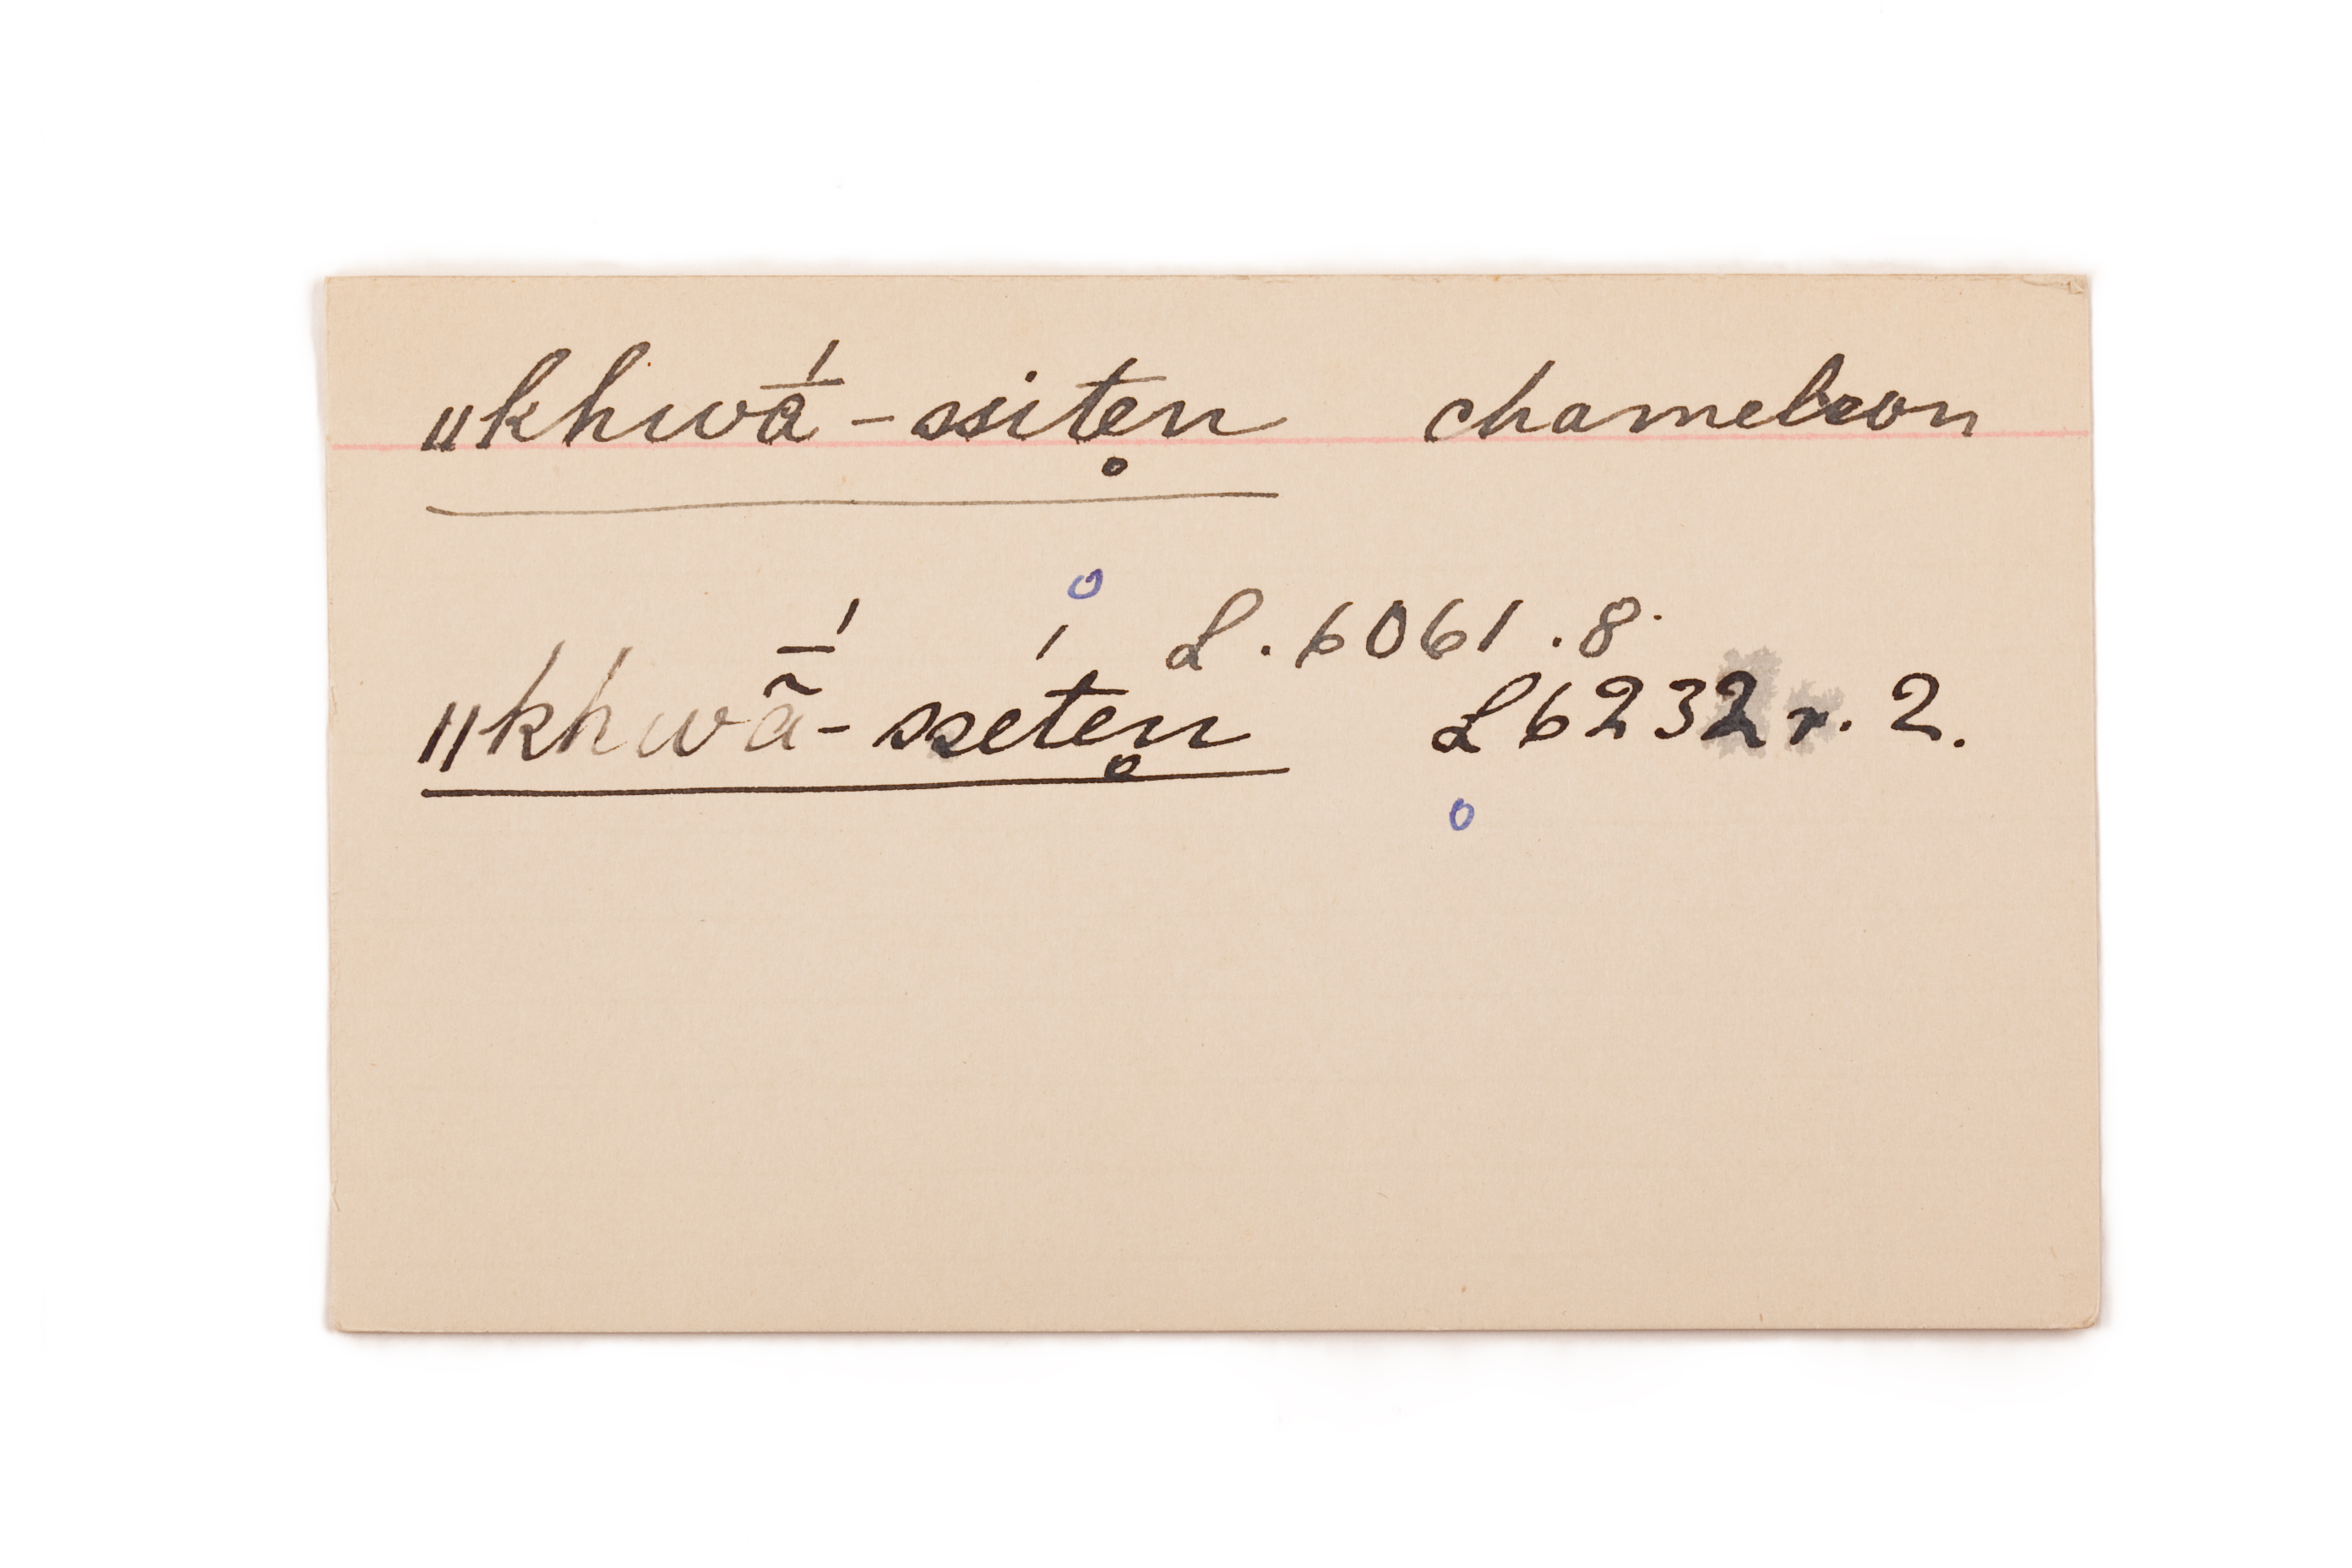 ǁkhwā́-ssitẹn̥ chameleon
L. 6061 . 8.
ǁkhwā̃́-ssétẹn̥ L 6232 r. 2.